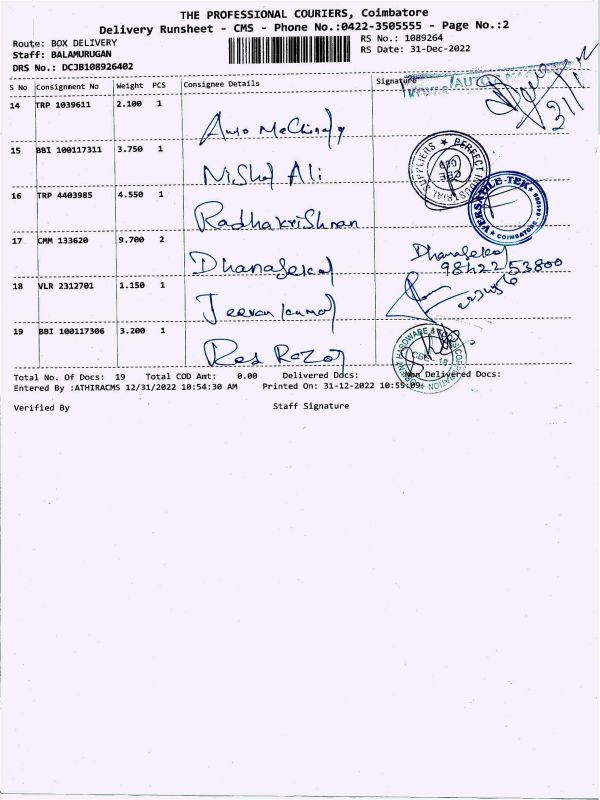 THE PROFESSIONAL COURIERS, Coimbatore
Delivery Runsheet - CMS - Phone No.:0422-3505555 - Page No.:2
Route: BOX DELIVERY RS No.: 1089264
Staff: BALAMURUGAN RS Date: 31-Dec-2022
DRS No.: DCJB108926402
S No Consignment No Weight PCS Consignee Details Signature
14 TRP 1039611 2.100 1
15 BBI 100117311 3.750 1
Nishal Ali
16 TRP 4403985 4.550 1
Radhakrishnan
17 CMM 133620 9.700 2
Dhanasekal Dhanasekal
98422 53800
18 VLR 2312701 1.150 1
Jeevan kumar
19 BBI 100117306 3.200 1
Red Razor
PERFECT
VERSATILE-TEK
COIMBATORE
HARDWARE &
CORPORATION
Total No. Of Docs: 19 Total COD Amt: 0.00 Delivered Docs: Non Delivered Docs:
Entered By :ATHIRACMS 12/31/2022 10:54:30 AM Printed On: 31-12-2022 10:55:09
Verified By Staff Signature